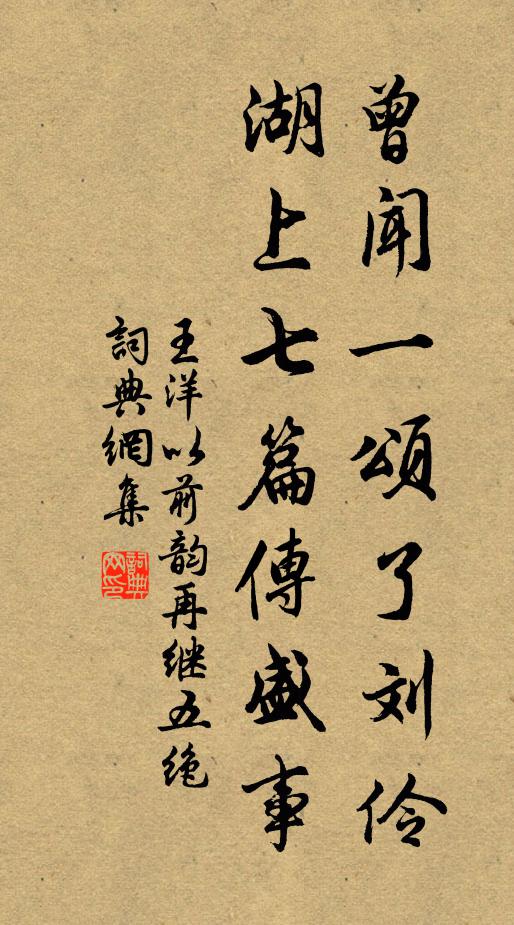 曾闻一頌了刘伶
湖上七篇傳盛事
王洋以前韵再继五绝
詞典網集
詞典网印